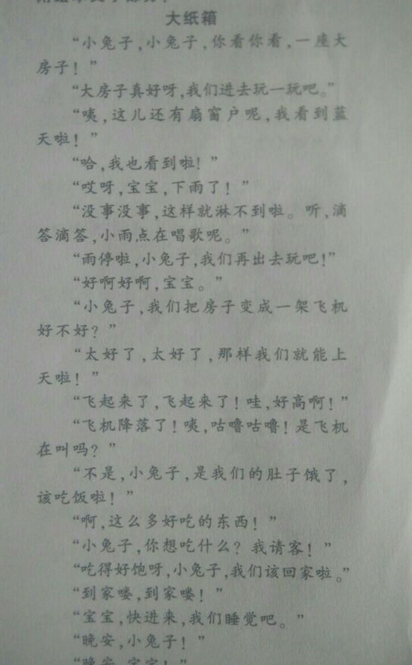 大纸箱
“小兔子,小兔子,你看你看,一座大
房子！”
“大房子真好呀,我们进去玩一玩吧。”
“咦,这儿还有扇窗户呢,我看到蓝
天啦！”
“哈,我也看到啦！”
“哎呀,宝宝,下雨了！”
“没事没事,这样就淋不到啦。听,滴
答滴答,小雨点在唱歌呢。”
“雨停啦,小兔子,我们再出去玩吧!”
“好啊好啊,宝宝。”
“小兔子,我们把房子变成一架飞机
好不好？”
“太好了,太好了,那样我们就能上
天啦！”
“飞起来了,飞起来了！哇,好高啊！”
“飞机降落了！咦,咕噜咕噜！是飞机
在叫吗？”
“不是,小兔子,是我们的肚子饿了,
该吃饭啦！”
“啊,这么多好吃的东西！”
“小兔子,你想吃什么？我请客！”
“吃得好饱呀,小兔子,我们该回家啦。”
“到家喽,到家喽！”
“宝宝,快进来,我们睡觉吧。”
“晚安,小兔子！”
“晚安,宝宝！”